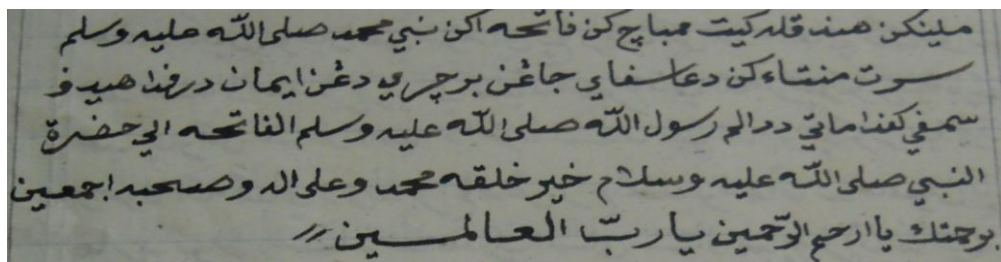 ملينكن هندقله كيت ممباچ كن فاتحه اكن نبي محمد صلى الله عليه وسلم
سرت منتاءكن دعا سفاي جاڠن برچري دڠن ايمان درفد هيدف
سمفي كفد ماتي ددالم رسول الله صلى الله عليه وسلم الفاتحه الي حضرة
النبي صلى الله عليه وسلام خير خلقه محمد وعلى اله وصحبه اجمعين
برحمتك يا ارحم الرّحمين يا ربّ العالمـــين //